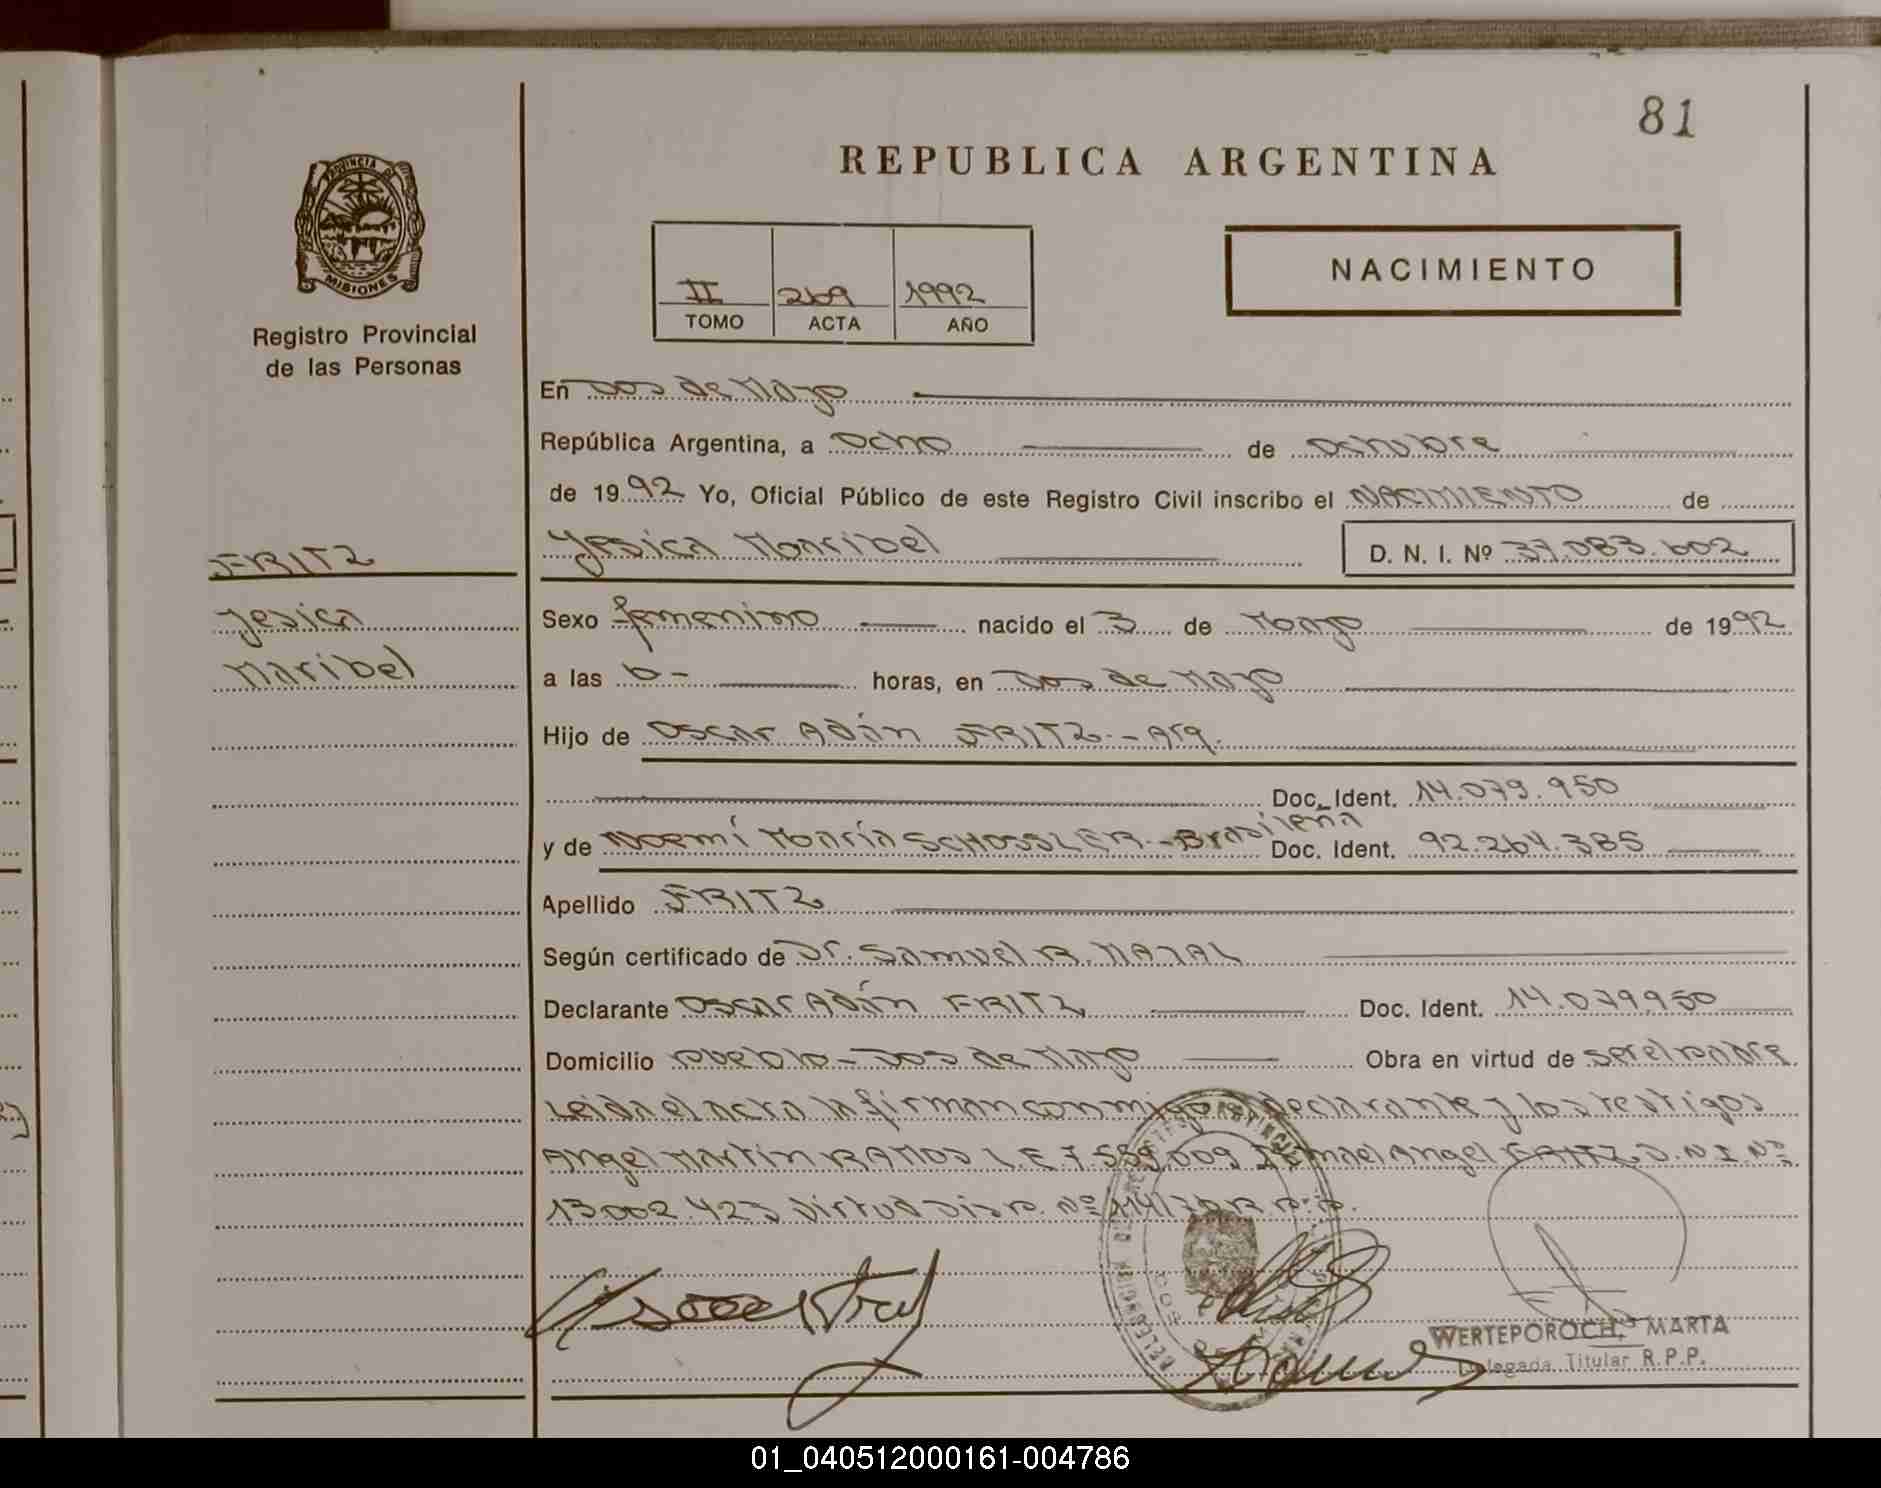 81
REPUBLICA ARGENTINA
PROVINCIA DE
MISIONES
Registro Provincial
de las Personas
II 269 1992
TOMO ACTA AÑO
NACIMIENTO
En Dos de Mayo
República Argentina, a ocho de octubre
de 1992 Yo, Oficial Público de este Registro Civil inscribo el NACIMIENTO de
FRITZ
Yesica Maribel D. N. I. Nº 37.083.602
Yesica
Maribel
Sexo femenino nacido el 3 de Mayo de 1992
a las 6- horas, en Dos de Mayo
Hijo de Oscar Adán FRITZ.- Arg.
Doc. Ident. 14.079.950
y de Noemí María SCHOSSLER.-Brasileña Doc. Ident. 92.264.385
Apellido FRITZ
Según certificado de Dr. Samuel R.
Declarante Oscar Adán FRITZ Doc. Ident. 14.079.950
Domicilio pueblo - Dos de Mayo Obra en virtud de ser el padre
Leida el acta la firman conmigo el declarante y los testigos
Angel Martín RAMOS L.E 7.559.009 Ismael Angel FRITZ D.N.I.Nº
13.002.423 Virtud Disp. Nº 114/78 R.P.P.
WERTEPOROCH, MARTA
Delegada Titular R.P.P.
01_040512000161-004786